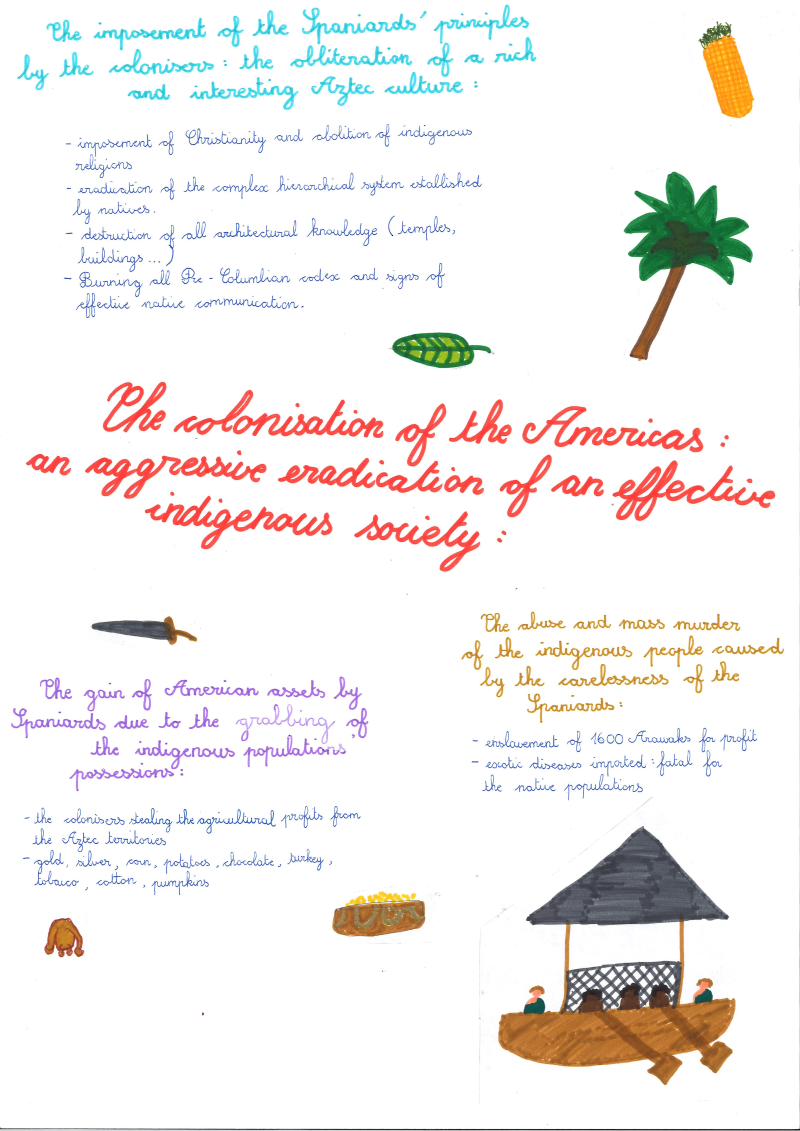 The imposement of the Spaniards' principles
by the colonisers : the obliteration of a rich
and interesting Aztec culture :
- imposement of Christianity and abolition of indigenous
religions
- eradication of the complex hierarchical system established
by natives.
- destruction of all architectural knowledge (temples,
buildings ... )
- Burning all Pre - Columbian codex and signs of
effective native communication.
The colonisation of the Americas :
an aggressive eradication of an effective
indigenous society :
The gain of American assets by
Spaniards due to the grabbing of
the indigenous populations'
possessions :
- the colonisers stealing the agricultural profits from
the Aztec territories
- gold, silver, corn, potatoes, chocolate, turkey,
tobacco, cotton, pumpkins
The abuse and mass murder
of the indigenous people caused
by the carelessness of the
Spaniards :
- enslavement of 1600 Arawaks for profit
- exotic diseases imported : fatal for
the native populations